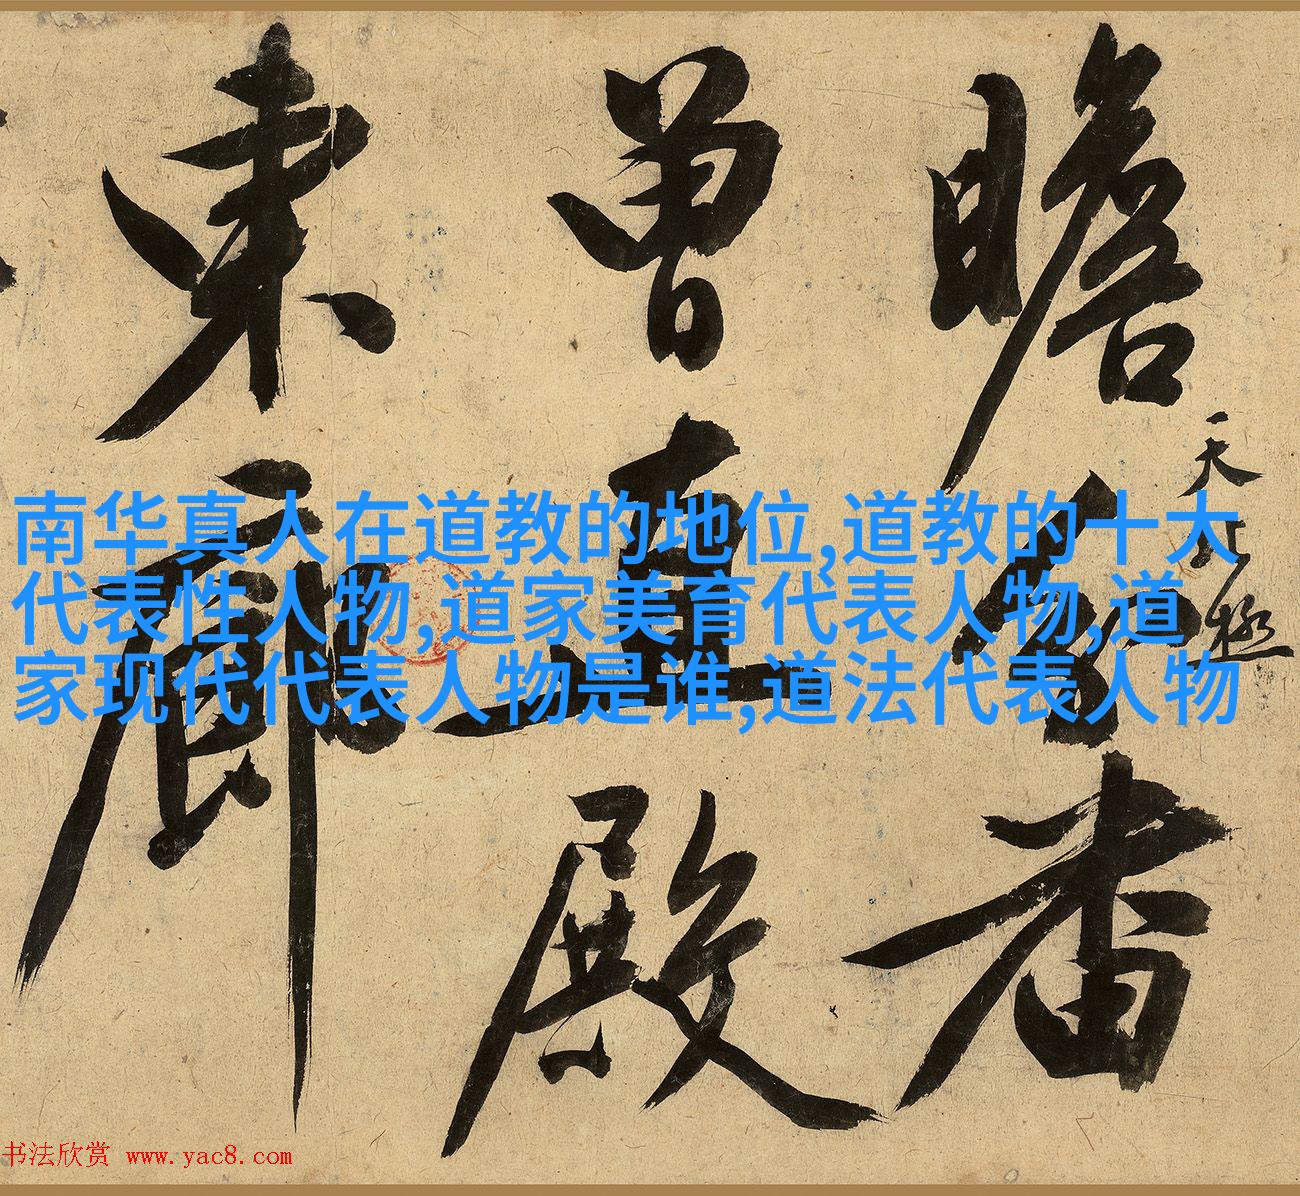 瞻
天
極
曾
殿
東廊
南华真人在道教的地位,道教的十大
代表性人物,道家美育代表人物,道
家现代代表人物是谁,道法代表人物
书法欣赏 www.yac8.com